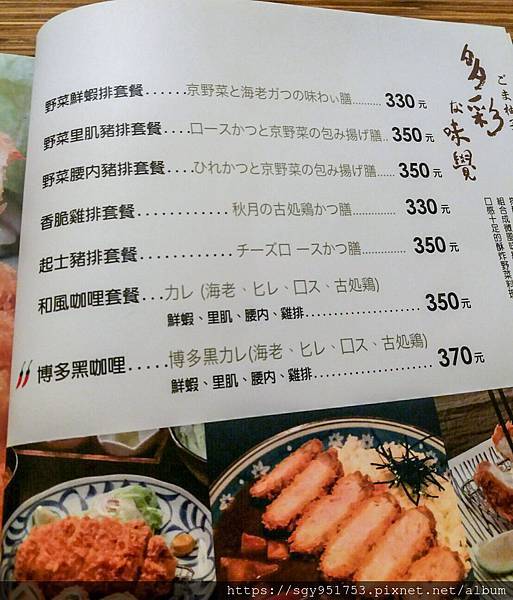 多彩な味覺
野菜鮮蝦排套餐......京野菜と海老ガつの味わぃ膳.......... 330元
野菜里肌豬排套餐....口ースかつと京野菜の包み揚げ膳.. 350元
野菜腰內豬排套餐.....ひれかつと京野菜の包み揚げ膳...... 350元
香脆雞排套餐............秋月の古処鶏かつ膳............... 330元
起士豬排套餐............チーズロ ースかつ膳............... 350元
和風咖哩套餐...カレ (海老、ヒレ、口ス、古処鶏)
鮮蝦、里肌、腰內、雞排...................... 350元
博多黑咖哩.....博多黒カレ(海老、ヒレ、口ス、古処鶏)
鮮蝦、里肌、腰內、雞排...................... 370元
口感十足的酥炸野菜料理
https://sgy951753.pixnet.net/album